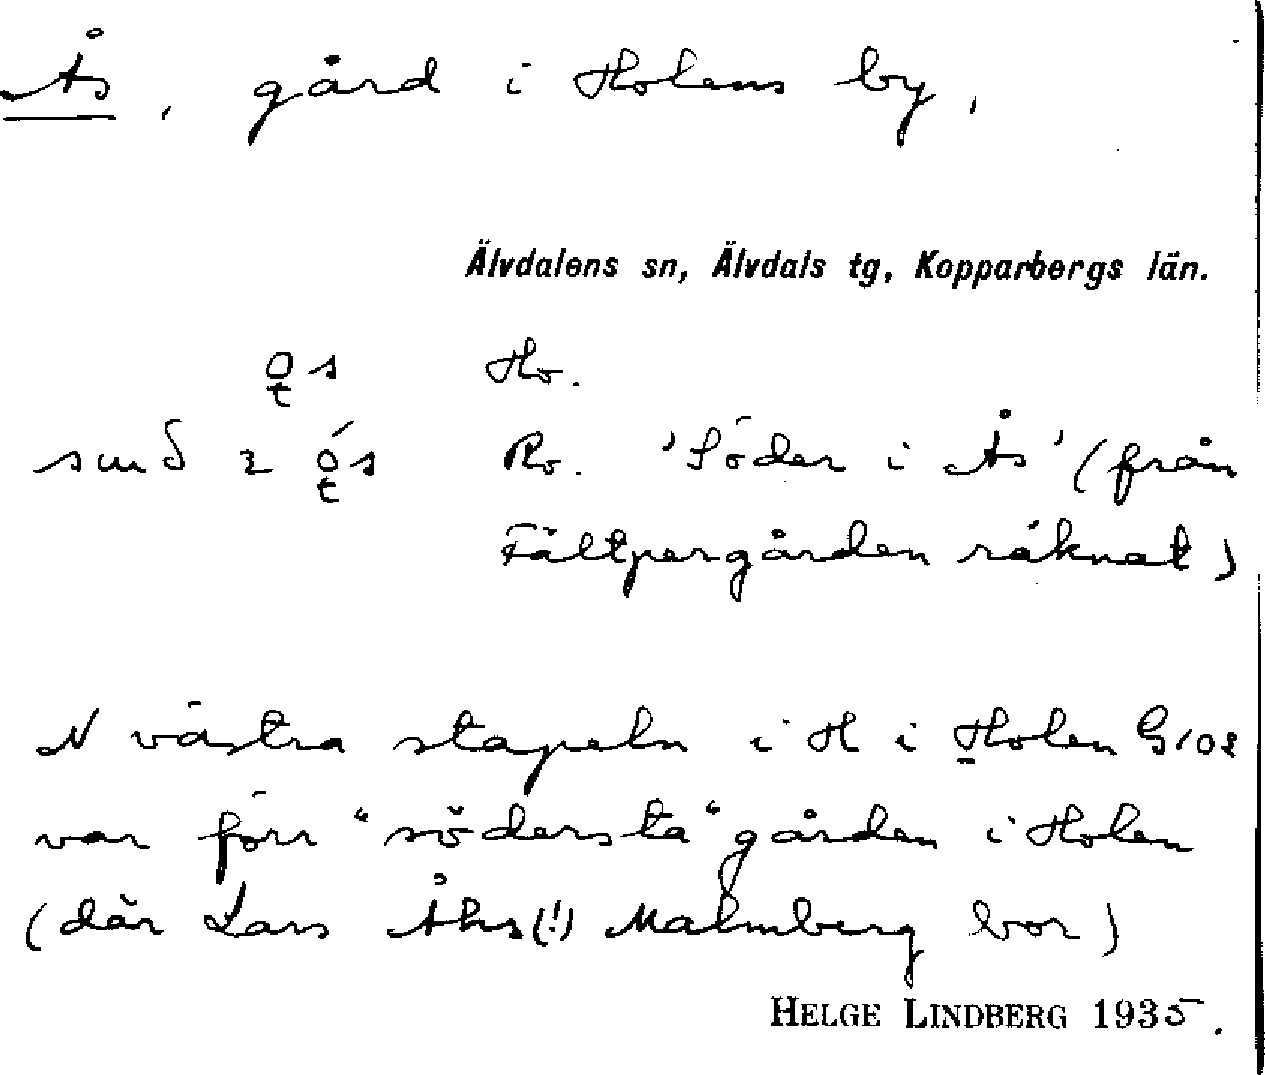 Ås, gård i Holens by,
Älvdalens sn, Älvdals tg, Kopparbergs län.
Ho.
Ro. 'Söder i Ås' (från
Fältpergården räknat)
N västra stapeln i H i Holen G 102
var förr "södersta" gården i Holen
(där Lars Åhs(!) Malmberg bor)
HELGE LINDBERG 1935.